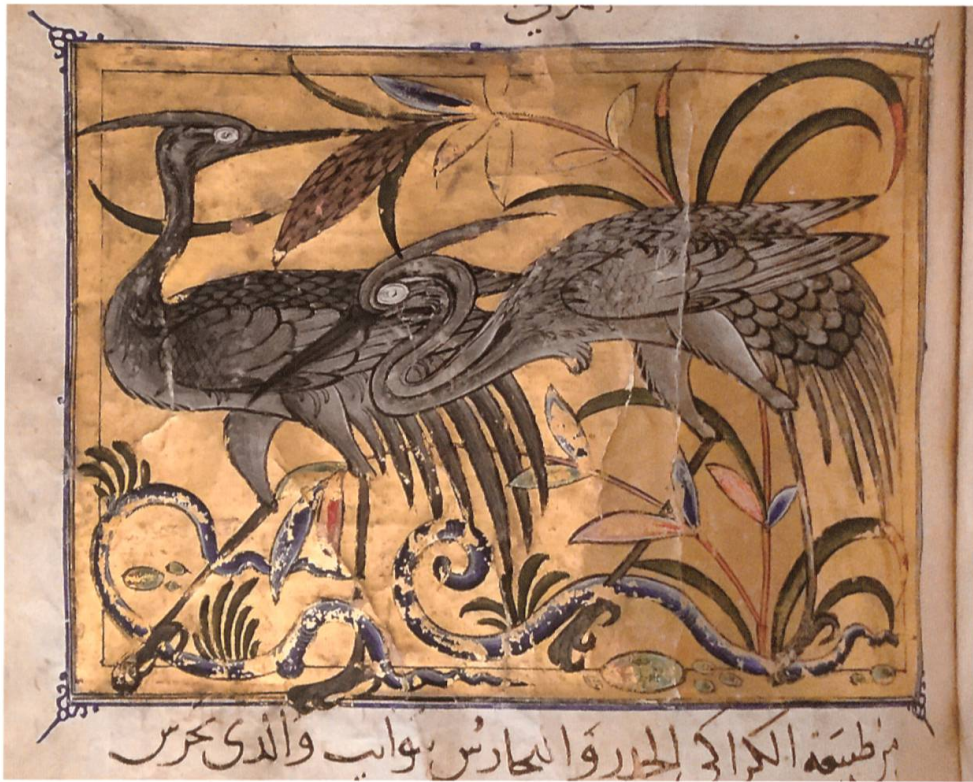 من طبيعة الكراكي الحذر والتحارس بنوايب والذى يحرس